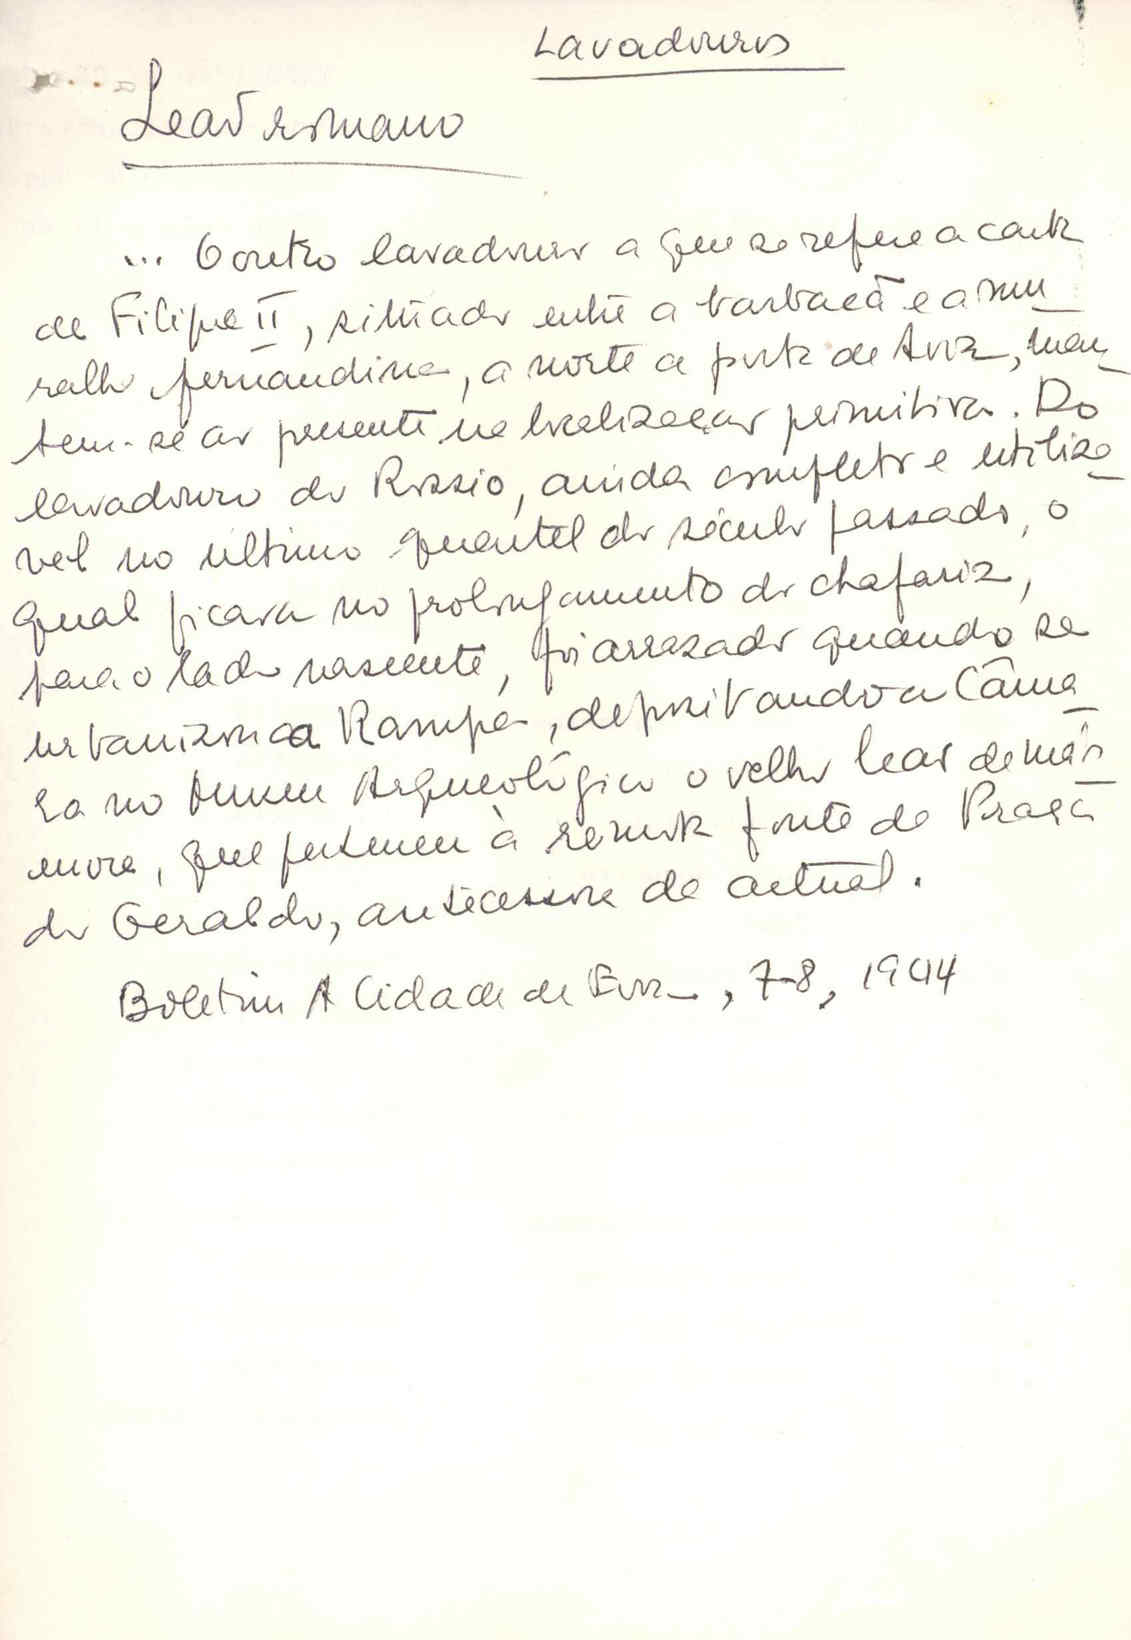 Lavadouros
Leão romano
... O outro lavadouro a que se refere a carta
de Filipe II, situado entre a barbacã e a mu
ralha fernandina, a norte a porta de Aviz, man
tem-se ao presente na localização primitiva. Do
lavadouro do Rossio, ainda completo e utilizá
vel no último quartel do século passado, o
qual ficava no prolongamento do chafariz,
para o lado nascente, foi arrasado quando se
urbanizou a Rampa, depositando a Câma
ra no Museu Arqueológico o velho leão de már
more, que pertenceu à remota fonte da Praça
do Geraldo, antecessora da actual.
Boletim A Cidade de Évora, 7-8, 1944